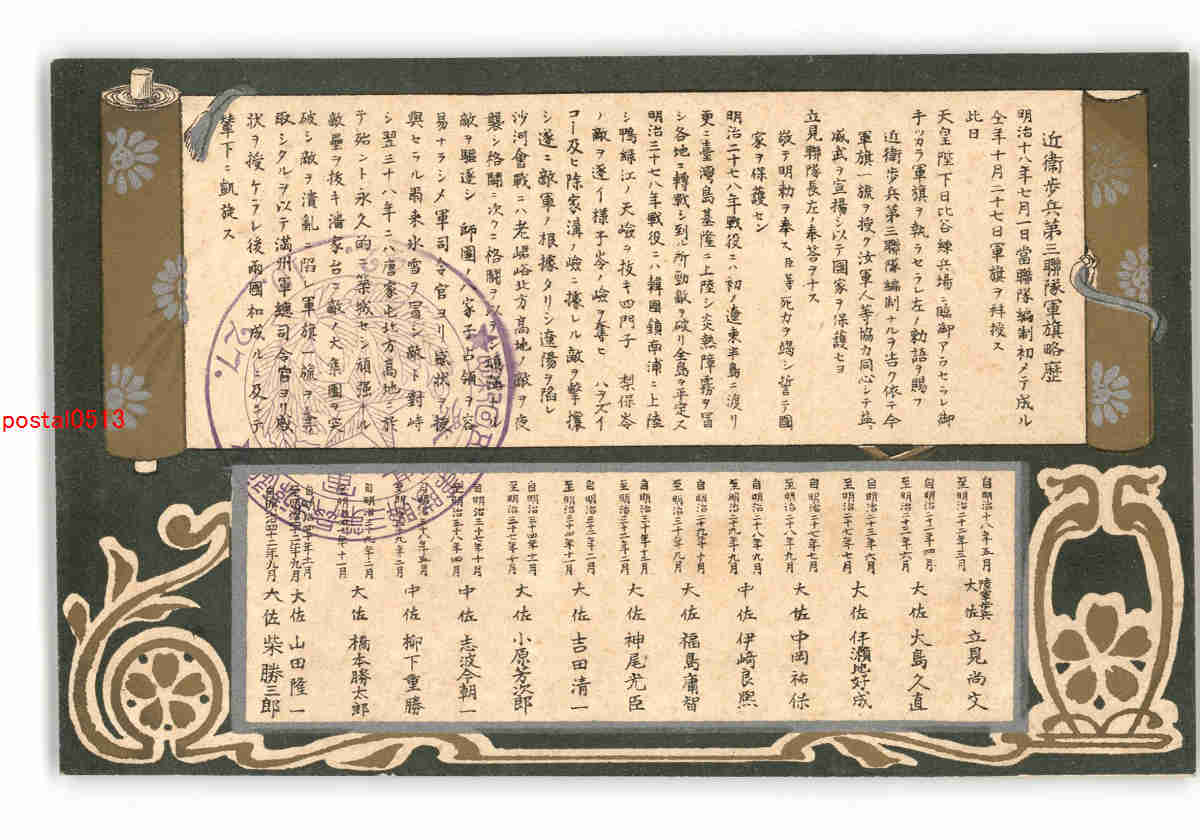 近衛歩兵第三聯隊軍旗略歴
明治十八年七月一日當聯隊編制初メテ成ル
仝年十月二十七日軍旗ヲ拜授ス
此日
天皇陛下日比谷練兵場ニ臨御アラセラレ御
手ツカラ軍旗ヲ執ラセラレ左ノ勅語ヲ賜フ
近衛歩兵第三聯隊編制ナルヲ告ク依テ今
軍旗一旒ヲ授ク汝軍人等協力同心シテ益
威武ヲ宣揚シ以テ國家ヲ保護セヨ
立見聯隊長左ノ奉答ヲナス
敬テ明勅ヲ奉ス臣等死力ヲ竭シ誓テ國
家ヲ保護セン
明治二十七八年戰役ニハ初ノ遼東半島ニ渡リ
更ニ臺灣島基隆ニ上陸シ炎熱障霧ヲ冒
シ各地ニ轉戰シ到ル所勁敵ヲ破リ全島ヲ平定ス
明治三十七八年戰役ニハ韓國鎮南浦ニ上陸
シ鴨緑江ノ天嶮ヲ抜キ四門子 梨保峪
ノ敵ヲ逐イ様子岺ノ嶮ヲ奪ヒ ハヲズイ
コー及ヒ除家溝ノ嶮ニ據レル敵ヲ擊攘
シ遂ニ敵軍ノ根據タリシ遼陽ヲ陷レ
沙河會戰ニハ老崛峪北方高地ノ敵ヲ夜
襲シ格鬪ニ次クニ格鬪ヲ以テシ頑強ナル
敵ヲ驅逐シ 師團ノ 家子占領ヲ容
易ナラシメ軍司令官ヨリ感狀ヲ授
與セラル爾来氷雪ヲ冒シ敵ト對峙
シ翌三十八年ニハ唐家屯北方高地ニ於
テ殆ント永久的ニ築城セシ頑強ナル
敵壘ヲ抜キ潘家台ノ敵ノ大集團ヲ突
破シ敵ヲ潰乱ニ陷レ軍旗一旒ヲ
取シタルヲ以テ満州軍總司令官ヨリ感
狀ヲ授ケラレ後兩國和成ルニ及ンテ
輦下ニ凱旋ス
自明治十八年五月
至明治二十二年三月
陸軍歩兵
大佐 立見尚文
自明治二十二年四月
至明治二十三年六月
大佐 大島久直
自明治二十三年六月
至明治二十七年七月
大佐 伊瀬地好成
自明治二十七年七月
至明治二十八年九月
大佐 中岡祐保
自明治二十八年九月
至明治二十九年九月
中佐 伊崎良熙
自明治二十九年十月
至明治三十年九月
大佐 福島庸智
自明治三十年十月
至明治三十二年二月
大佐 神尾光臣
自明治三十二年二月
至明治三十四年十一月
大佐 吉田清一
自明治三十四年十一月
至明治三十七年十月
大佐 小原芳次郎
自明治三十七年十月
至明治三十八年四月
中佐 志波今朝一
自明治三十八年五月
至明治三十九年二月
中佐 柳下重勝
自明治三十九年二月
至明治四十年十一月
大佐 橋本勝太郎
大佐 山田隆一
自明治四十二年九月
大佐 柴勝三郎
27.
postal0513